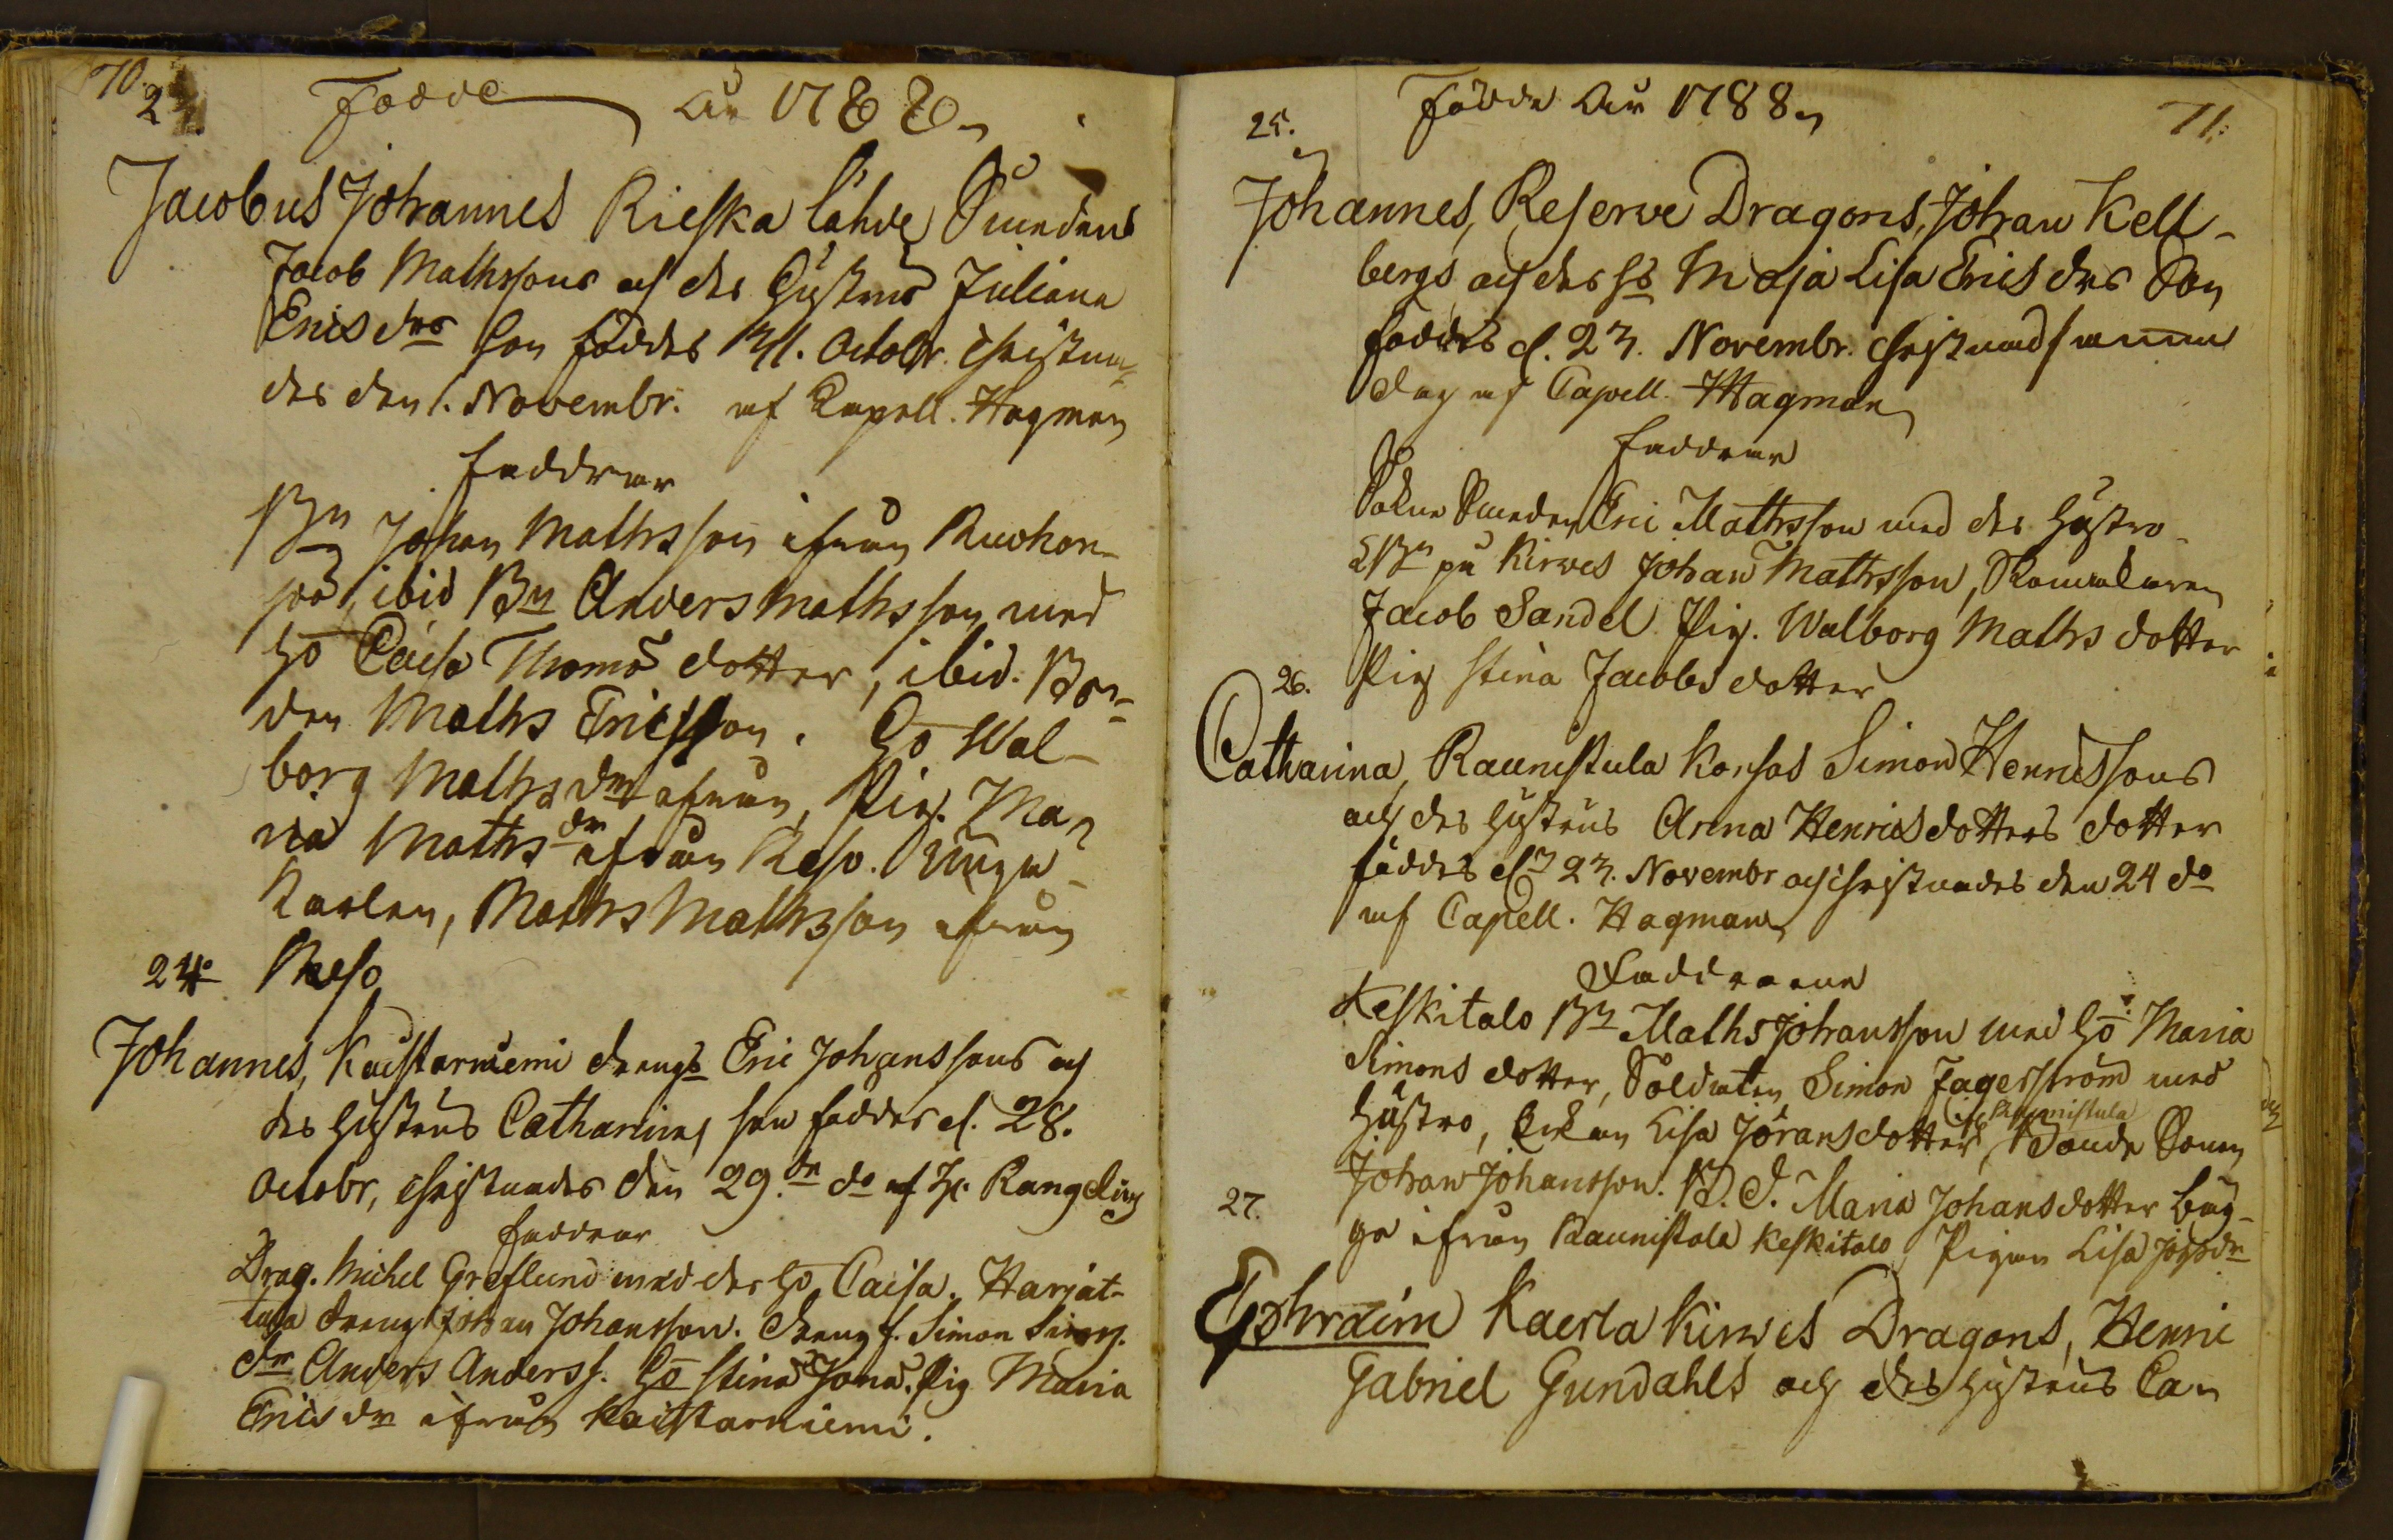 70.
Födde År 1788
2
Jacobus Johannes Rieska lähde Smedens
Jacob Mathssons och des Hustrus Juliana
Erics drs Son föddes 31. Octobr. Christna=
des den 1. Novembr. af Capell. Hagman
Faddrar
Bn Johan Mathsson ifrån
ibid Bn Anders Mathsson med
Ho Caisa Thomæ dotter, ibid. Bon=
den Maths Ericsson. Ho Wal-
borg Mathsdr ifrån, Pig. Ma
ria Maths dr ifrån Keso. Unga
Karlen, Maths Mathsson ifrån
24. Keso
Johannes, Kaustarniemi drengs Eric Johanssons och
des Hustrus Catharinas son föddes d. 28.
Octobr, Christnades den 29. de do af H. Rangelius
Faddrar
Drag. Michel Greflund med des Ho Caisa. Harjat-
tula dreng Johan Johansson. Dreng s. Simon Simss.
dr Anders Anderss. Ho Stina Jona. Pig Maria
Erics dr ifrån Kaistarniemi.
Födde År 1788
71.
25.
Johannes, Reserve Dragons, Johan Kell-
bergs och des Hs Maja Lisa Erics drs Son
föddes d. 23. Novembr. Christnad samma
dag af Capell. Hagman
Faddrar
Sokne Smeden Eric Mathsson med des Hustro
Bn på Kirves Johan Mathsson, Skomakaren
Jacob Sandel Pig. Walborg Maths dotter
Pig Stina Jacobs dotter
26.
Catharina, Raunistula Korhos Simon Henricssons
och des Hustrus Anna Henricsdotters dotter
föddes d. 23. Novembr och Christnades den 24 do
af Capell. Hagman
Faddrarne
Keskitalo Bn Maths Johansson med Ho Maria
Simons dotter, Soldaten Simon Jagerström med
Hustro, Enkan Lisa Jöransdotter, Bonde Sonen
if. Raunistula
Johan Johansson. B. D. Maria Johansdotter båg-
27.
ge ifrån Raunistula Keskitalo, Pigan Lisa Johsdr
Ephraim Kaerla Kirves Dragons, Henric
Gabriel Gundahls och des Hustrus Ca